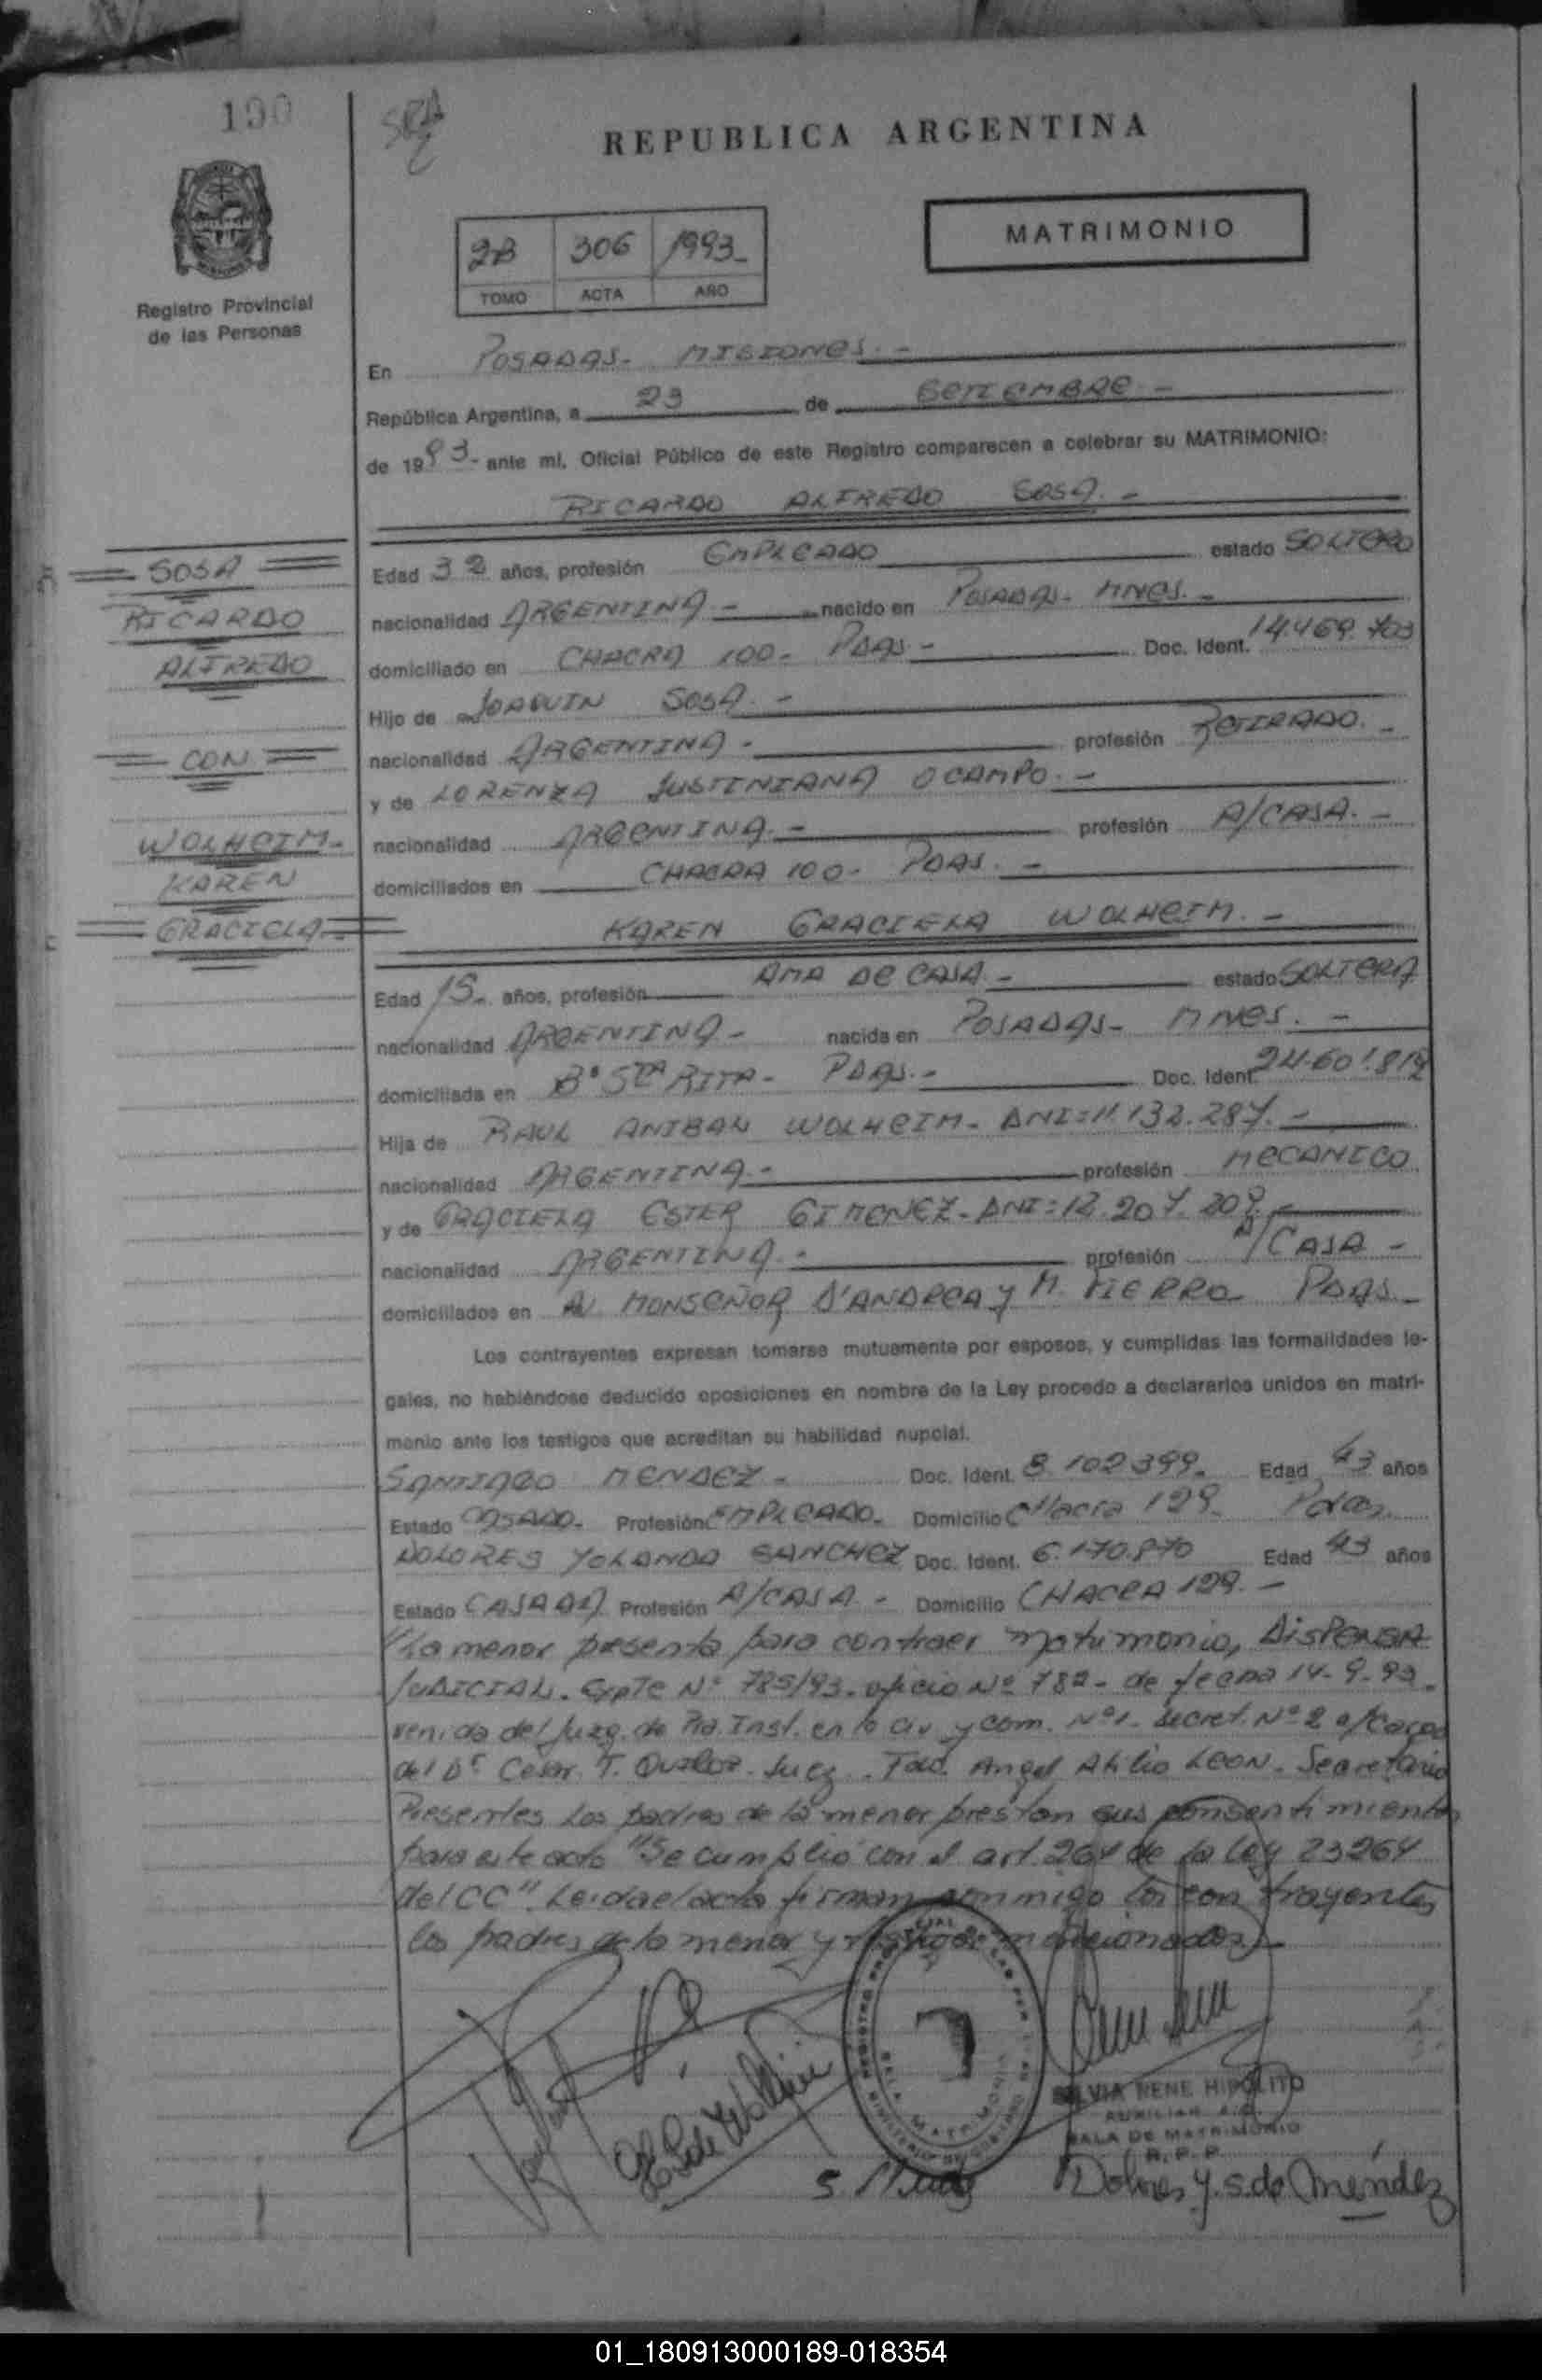 190
REPUBLICA ARGENTINA
Registro Provincial
de las Personas
2B 306 1993-
TOMO ACTA AÑO
MATRIMONIO
En POSADAS- MISIONES.-
República Argentina, a 23 de SETIEMBRE.-
de 1993- ante mí, Oficial Público de este Registro comparecen a celebrar su MATRIMONIO:
RICARDO ALFREDO SOSA.-
SOSA
RICARDO
ALFREDO
CON
WOLHEIM-
KAREN
GRACIELA-
Edad 32 años, profesión EMPLEADO estado SOLTERO
nacionalidad ARGENTINA- nacido en POSADAS- MNES.-
domiciliado en CHACRA 100- PDAS- Doc. Ident. 14.469.703
Hijo de JOAQUIN SOSA.-
nacionalidad ARGENTINA- profesión RETIRADO.-
y de LORENZA JUSTINIANA OCAMPO.-
nacionalidad ARGENTINA.- profesión A/CASA.-
domiciliados en CHACRA 100- PDAS.-
KAREN GRACIELA WOLHEIM.-
Edad 15- años, profesión AMA DE CASA- estado SOLTERA
nacionalidad ARGENTINA- nacida en POSADAS- MNES.-
domiciliada en Bº STA RITA- PDAS.- Doc. Ident.
Hija de RAUL ANIBAL WOLHEIM- DNI=11.132.287.-
nacionalidad ARGENTINA.- profesión MECANICO
y de GRACIELA ESTER GIMENEZ- DNI=
nacionalidad ARGENTINA.- profesión A/CASA-
domiciliados en AV. MONSEÑOR D'ANDREA y M. FIERRO PDAS-
Los contrayentes expresan tomarse mutuamente por esposos, y cumplidas las formalidades le-
gales, no habiéndose deducido oposiciones en nombre de la Ley procedo a declararlos unidos en matri-
monio ante los testigos que acreditan su habilidad nupcial.
SANTIAGO MENDEZ- Doc. Ident. 8.102.399- Edad 43 años
Estado CASADO- Profesión EMPLEADO- Domicilio Chacra 129- Pdas.
DOLORES YOLANDA SANCHEZ Doc. Ident. 6.170.870 Edad 43 años
Estado CASADA Profesión A/CASA- Domicilio CHACRA 129.-
"La menor presenta para contraer matrimonio, DISPENSA
JUDICIAL. Expte Nº 785/93. oficio Nº 782- de fecha 14-9-93-
venida del Juzg. de Pra. Inst. en lo civ. y com. Nº1- Secret. Nº 2 a/cargo
del Dr Cesar T. Juez. Fdo. Angel Atilio LEON- Secretario
Presentes los padres de la menor prestan sus consentimientos
para este acto "Se cumplió con el art. 264 de la Ley 23264
del CC". Leida el acta firman conmigo los contrayentes
los padres de la menor y testigos mencionados)-
SALA MATRIMONIO
SILVIA RENE HIPOLITO
AUXILIAR
SALA DE MATRIMONIO
R. P. P.
Dolores Y. S. de Méndez
01_180913000189-018354